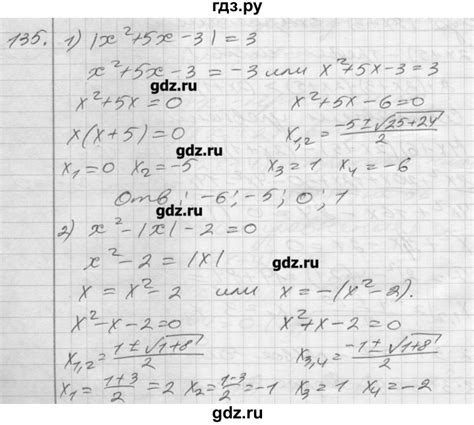 гдз.ру
135. 1) |x²+5x-3| = 3
x²+5x-3 = -3 или x²+5x-3 = 3
гдз.ру
x²+5x = 0   x²+5x-6 = 0
x(x+5) = 0   x₁,₂ = (-5±√(25+24))/2
x₁ = 0   x₂ = -5   x₃ = 1   x₄ = -6
Отв: -6; -5; 0; 1
2) x²-|x|-2 = 0
x²-2 = |x|
гдз.ру
x = x²-2 или x = -(x²-2).
x²-x-2 = 0   x²+x-2 = 0
x₁,₂ = (1±√(1+8))/2   x₃,₄ = (-1±√(1+8))/2
x₁ = (1+3)/2 = 2   x₂ = (1-3)/2 = -1   x₃ = 1   x₄ = -2
гдз.ру